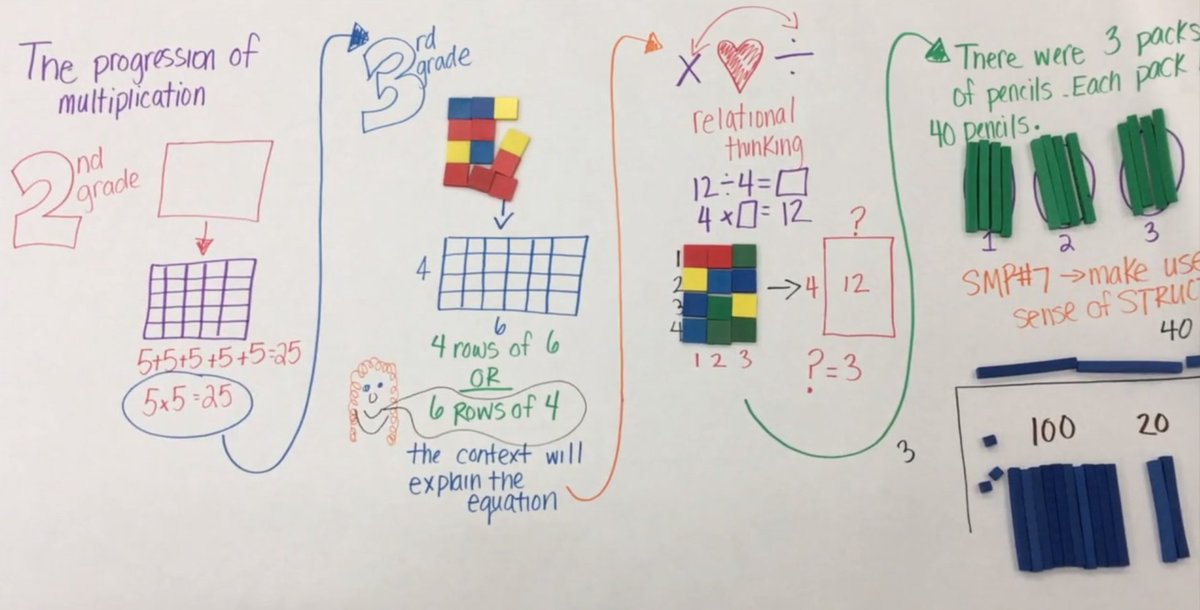 The progression of
multiplication
2nd
grade
5+5+5+5+5=25
5x5=25
3rd
grade
4
6
4 rows of 6
OR
6 rows of 4
the context will
explain the
equation
x ÷
relational
thinking
12÷4=□
4x□=12
1
2
3
4
1 2 3
→4
?
12
?=3
There were 3 packs
of pencils. Each pack
40 pencils.
1 2 3
SMP#7 →make use
sense of STRUC
40
3
100 20